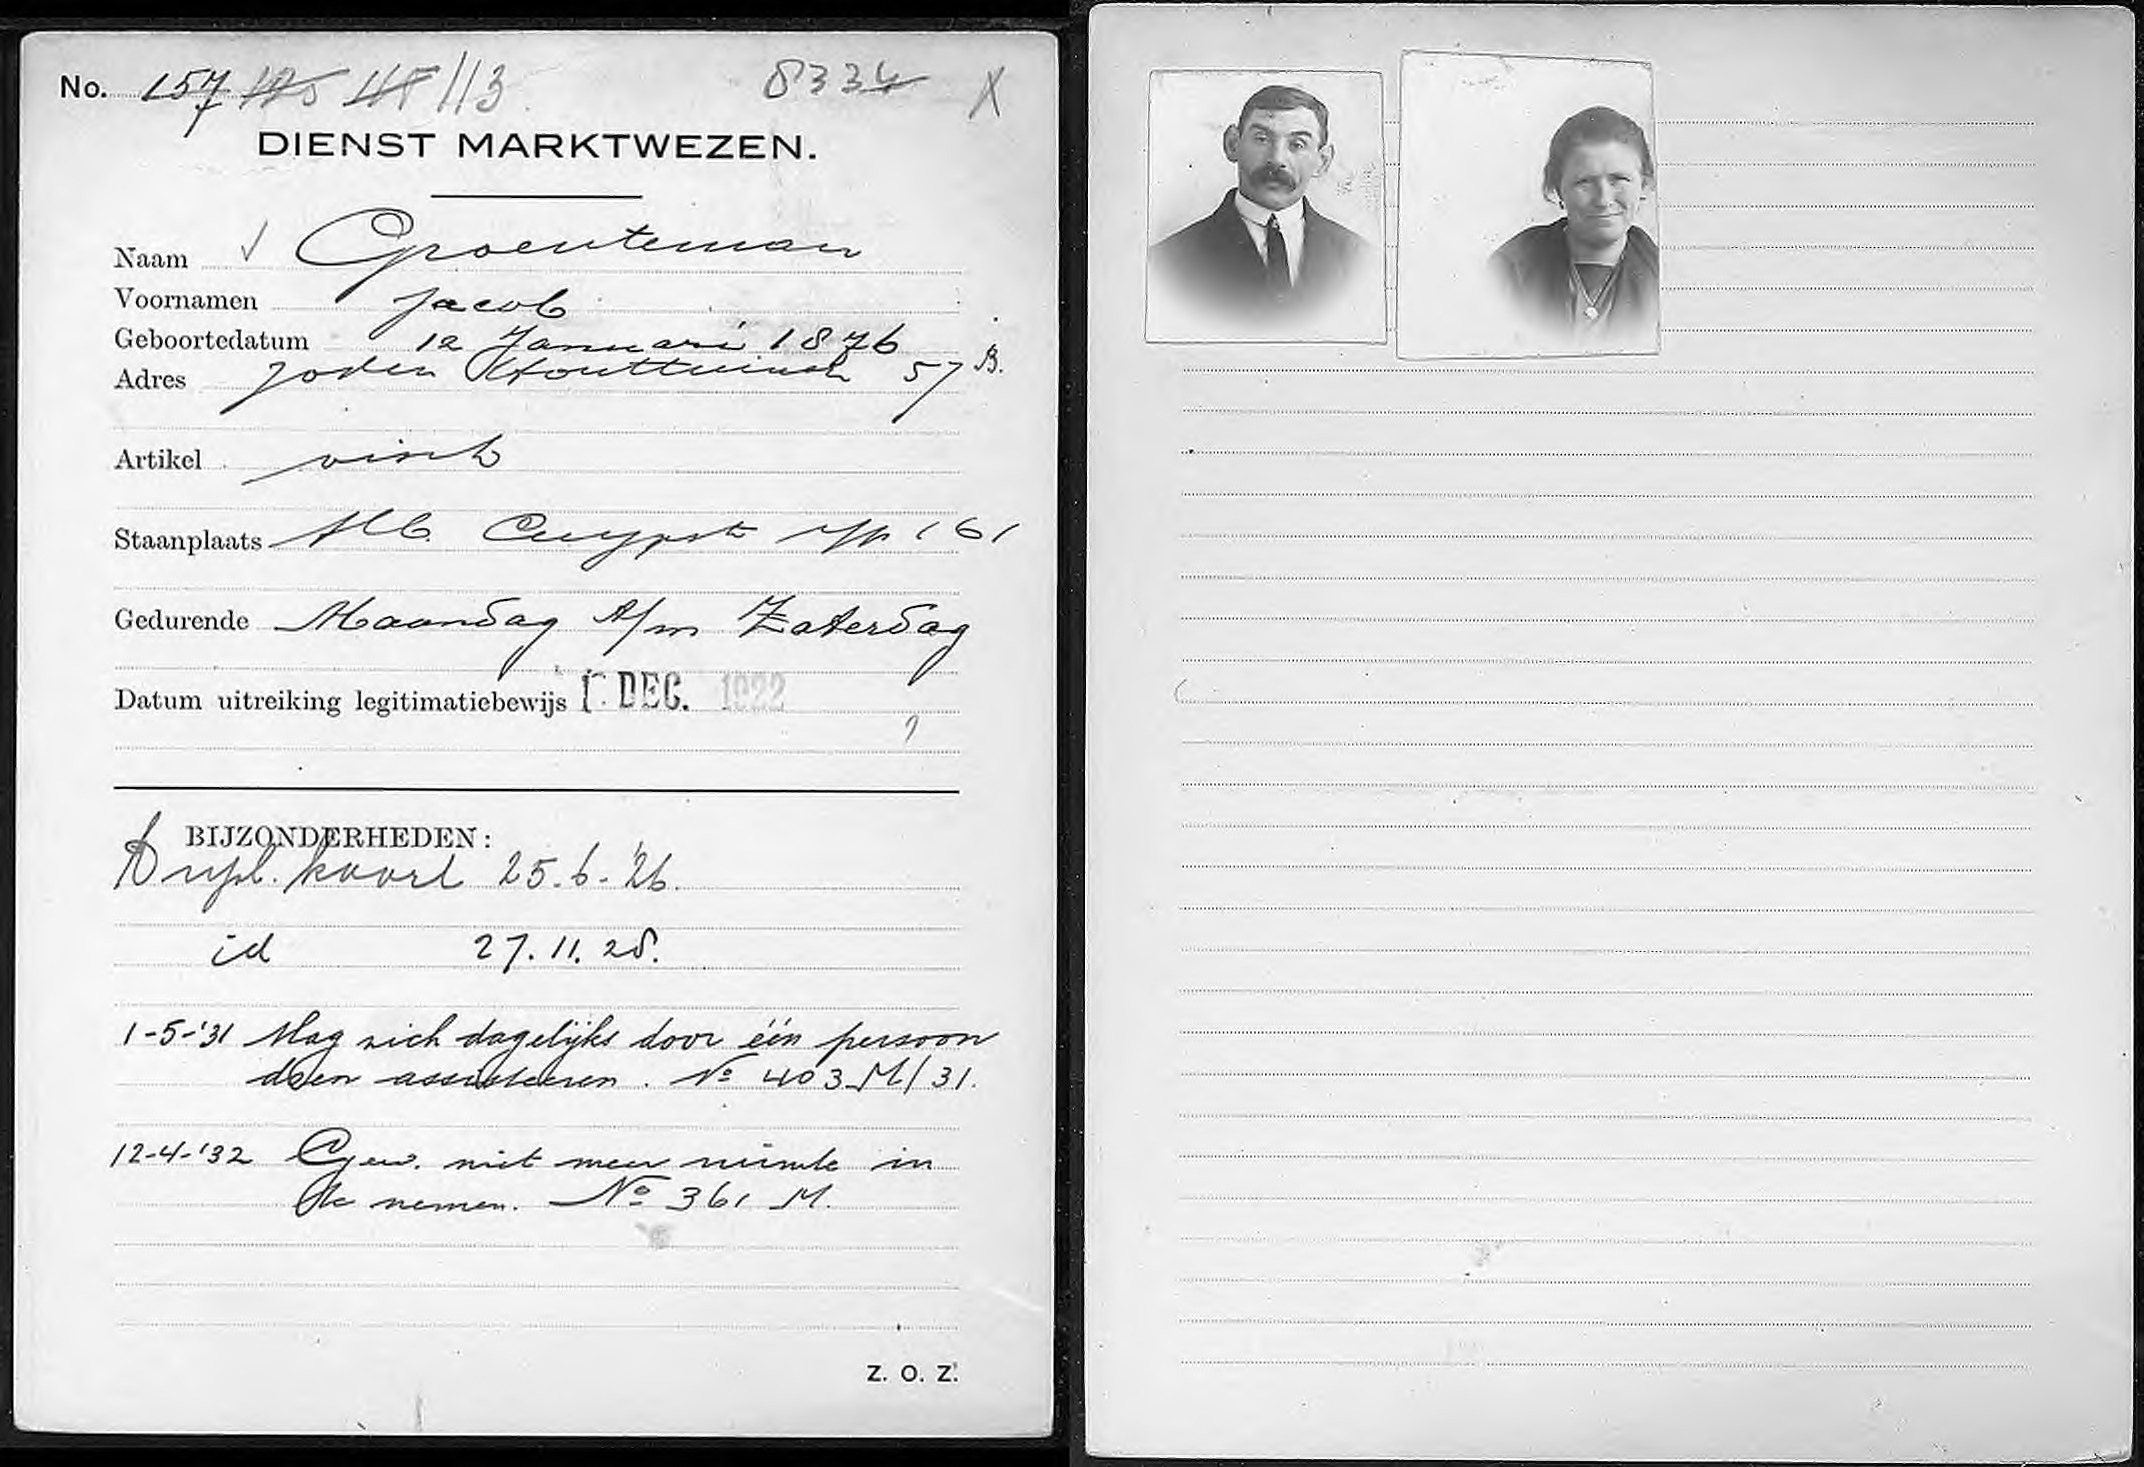 No. 157 125 113 8334 X
DIENST MARKTWEZEN.
Naam √ Groenteman
Voornamen Jacob
Geboortedatum 12 Januari 1876
Adres Joden Houttuinen 57 B.
Artikel visch
Staanplaats Alb. Cuypstr 161
Gedurende Maandag t/m Zaterdag
Datum uitreiking legitimatiebewijs 1 DEC. 1922
BIJZONDERHEDEN:
Dupl. kaart 25.6.'26.
id 27.11.28.
1-5-'31 Mag zich dagelijks door één persoon
doen assisteeren. No 403 M/31.
12-4-'32 Gew. niet meer ruimte in
te nemen. No 361 M.
Z. O. Z.